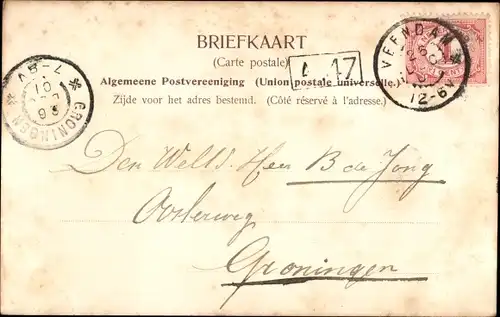 BRIEFKAART
(Carte postale)
Algemeene Postvereeniging (Union postale universelle.)
Zijde voor het adres bestemd. (Côté réservé à l'adresse.)
17
VEENDAM
12-6
GRONINGEN
Den WelEd. Heer B de Jong
Oosterweg
Groningen